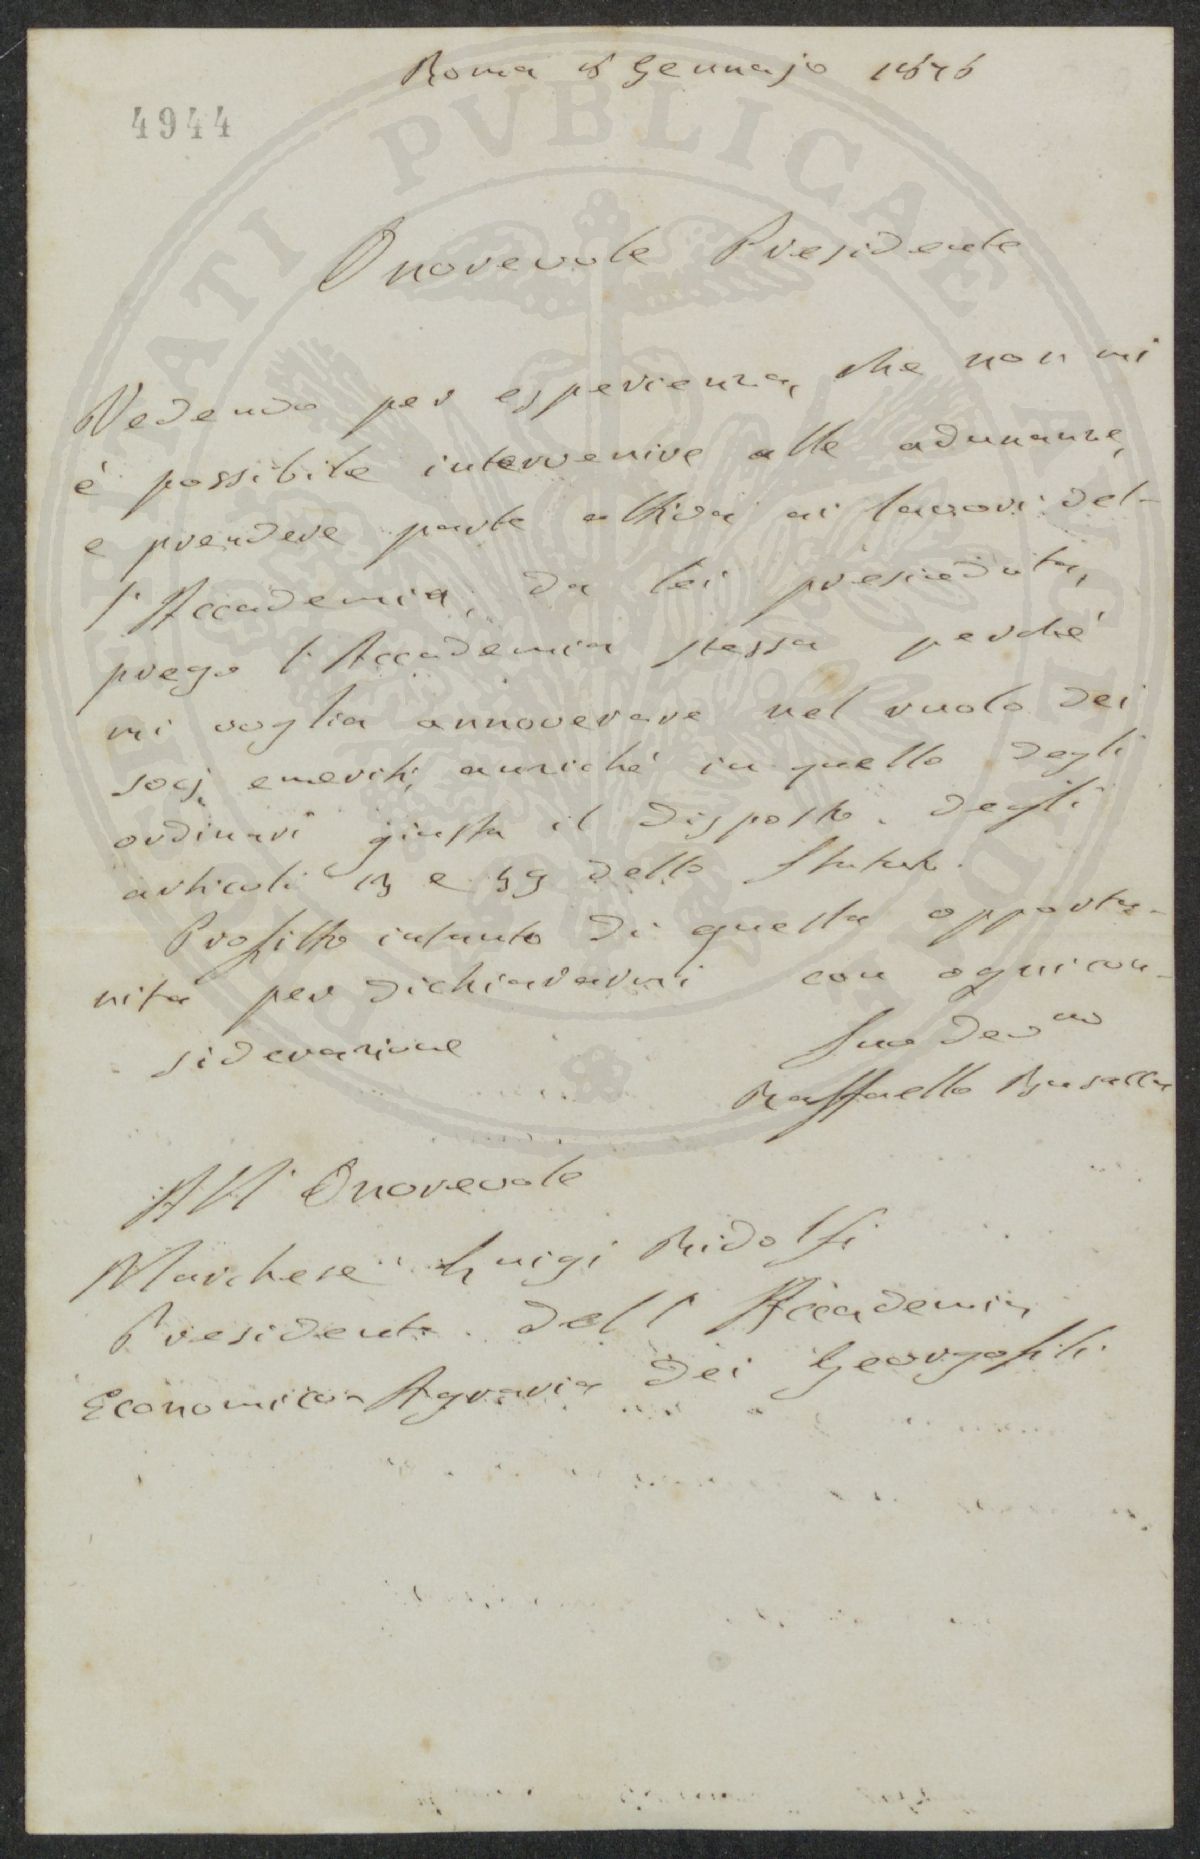 Roma 8 Gennajo 1876
4944
Onorevole Presidente
Vedendo per esperienza, che non mi
è possibile intervenire alle adunanze,
e prendere parte attiva ai lavori del-
l'Accademia, da lei presieduta,
prego l'Accademia stessa perché
mi voglia annoverare nel ruolo dei
socj emeriti, anziché in quello degli
ordinari giusta il disposto degli
articoli 13 e 59 dello Statuto.
Profitto intanto di questa opportu-
nita per dichiararmi con ogni con-
siderazione
Suo Dev.mo
Raffaello Busacca
All'Onorevole
Marchese Luigi Ridolfi
Presidente dell'Accademia
Economico-Agraria dei Georgofili.
PROSPERITATI PVBLICAE AVGENDAE